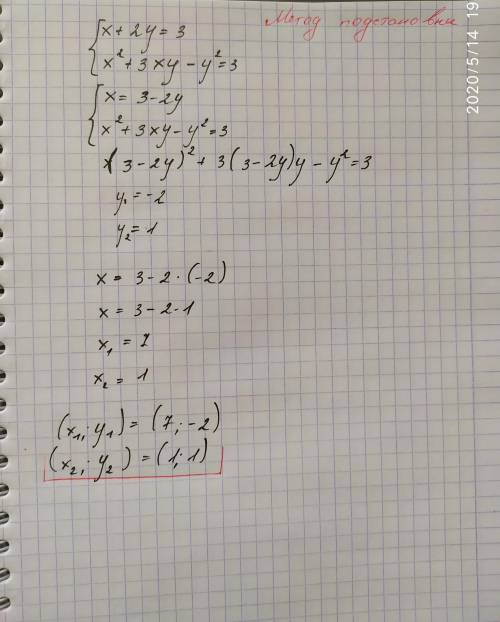 Метод подстановки
2020/5/14 19
{x + 2y = 3
x² + 3xy - y² = 3
{x = 3 - 2y
x² + 3xy - y² = 3
(3 - 2y)² + 3(3 - 2y)y - y² = 3
y₁ = -2
y₂ = 1
x = 3 - 2 · (-2)
x = 3 - 2 · 1
x₁ = 7
x₂ = 1
(x₁; y₁) = (7; -2)
(x₂; y₂) = (1; 1)